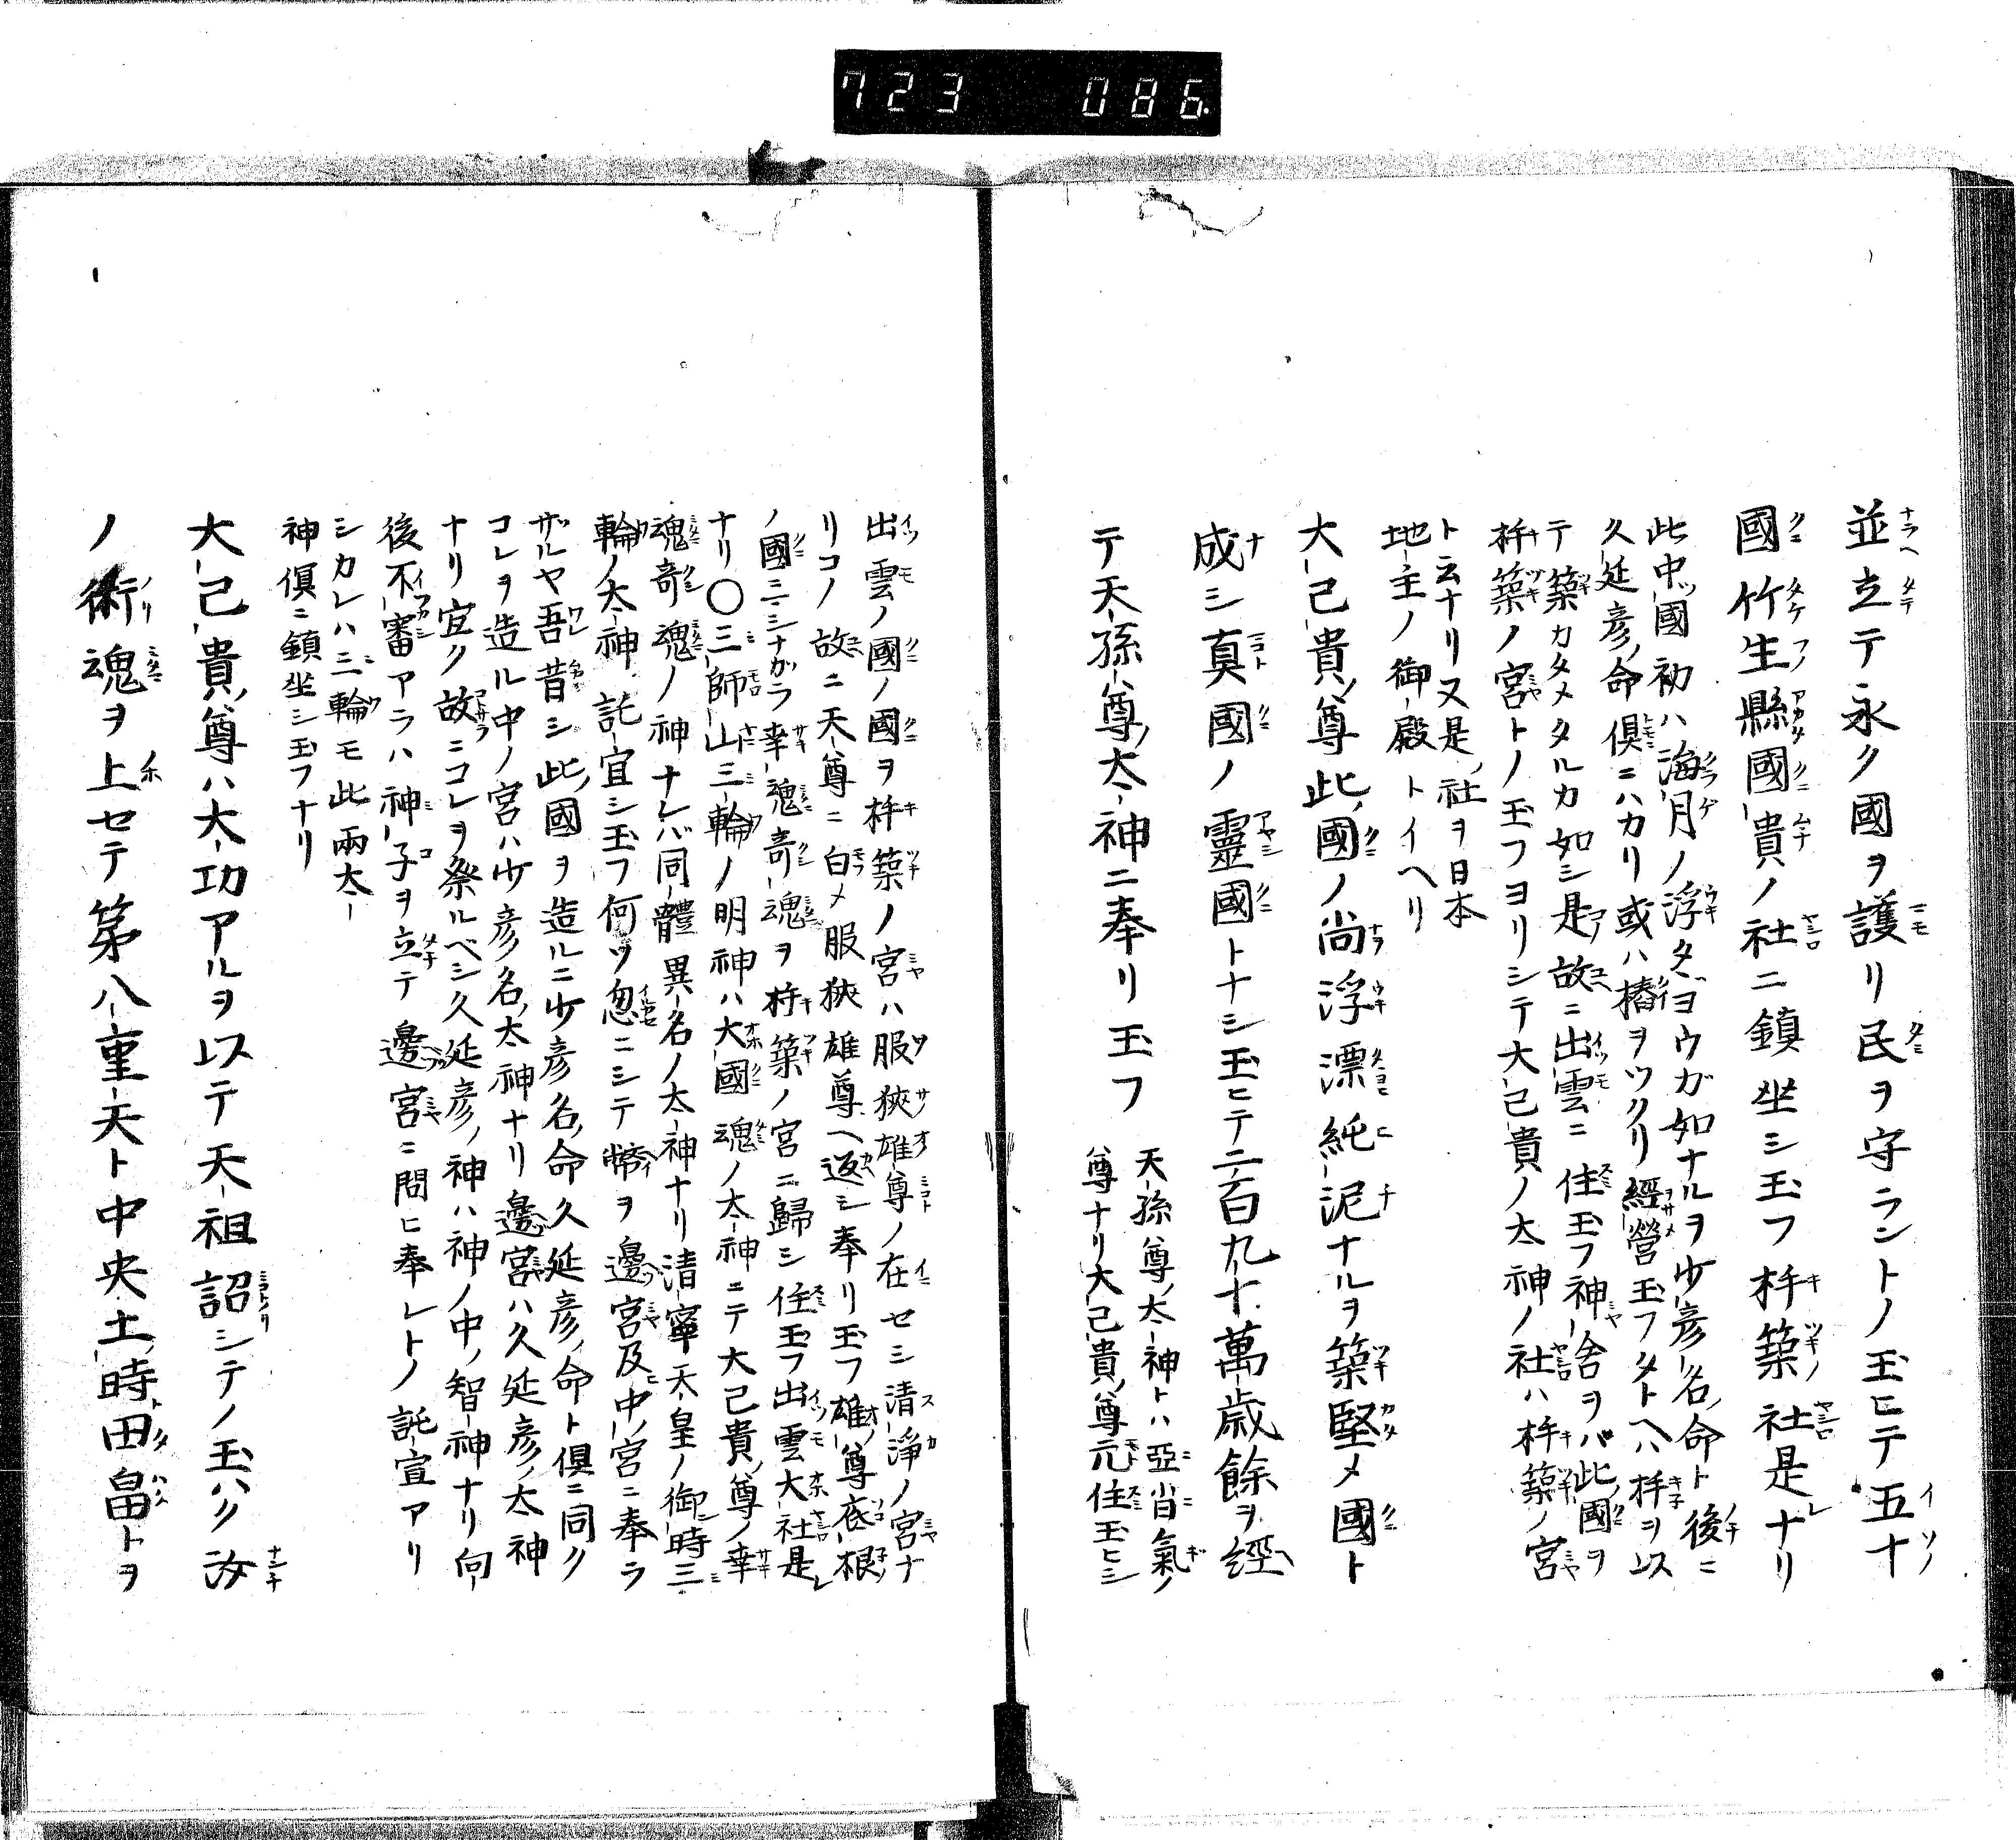 723 086
並立テ永ク國ヲ護リ民ヲ守ラントノ玉ヒテ五十
國竹生縣國貴ノ社ニ鎮坐シ玉フ杵築社是ナリ
此中國初ハ海月ノ浮タヾヨウガ如ナルヲ少彦名命ト後ニ
久延彦命俱ニハカリ或ハ樁ヲツクリ經營玉フタトヘハ杵ヲ以
テ築カタメタルカ如シ是故ニ出雲ニ住玉フ神舍ヲバ此國ヲ
杵築ノ宮トノ玉フヨリシテ大己貴ノ太神ノ社ハ杵築ノ宮
ト云ナリ又是社ヲ日本
地主ノ御殿トイヘリ
大己貴尊此國ノ尚浮漂純泥ナルヲ築堅メ國ト
成シ真國ノ靈國トナシ玉ヒテ二百九十萬歳餘ヲ經
テ天孫尊太神ニ奉リ玉フ
天孫尊太神トハ亞肖氣ノ
尊ナリ大己貴尊元住玉ヒシ
出雲ノ國ノ國ヲ杵築ノ宮ハ服狹雄尊ノ在セシ清淨ノ宮ナ
リコノ故ニ天尊ニ白メ服狹雄尊ヘ返シ奉リ玉フ雄尊底根
ノ國ニシナガラ幸魂奇魂ヲ杵築ノ宮ニ歸シ住玉フ出雲大社是
ナリ〇三師山三輪ノ明神ハ大國魂ノ太神ニテ大己貴尊ノ幸
魂奇魂ノ神ナレバ同體異名ノ太神ナリ清寧天皇ノ御時三
輪ノ太神託宣シ玉フ何ツ忽ニシテ幣ヲ邊宮及中宮ニ奉ラ
ザルヤ吾昔シ此國ヲ造ルニ少彦名命久延彦命ト俱ニ同ク
コレヲ造ル中ノ宮ハ少彦名太神ナリ邊宮ハ久延彦太神
ナリ宜ク故ニコレヲ祭ルベシ久延彦ノ神ハ神ノ中ノ智神ナリ向
後不審アラハ神子ヲ立テ邊宮ニ問ヒ奉レトノ託宣アリ
シカレハ三輪モ此兩太
神俱ニ鎮坐シ玉フナリ
大己貴尊ハ太功アルヲ以テ天祖詔シテノ玉ハク汝
ノ術魂ヲ上セテ第八重天ト中央土時田畠トヲ